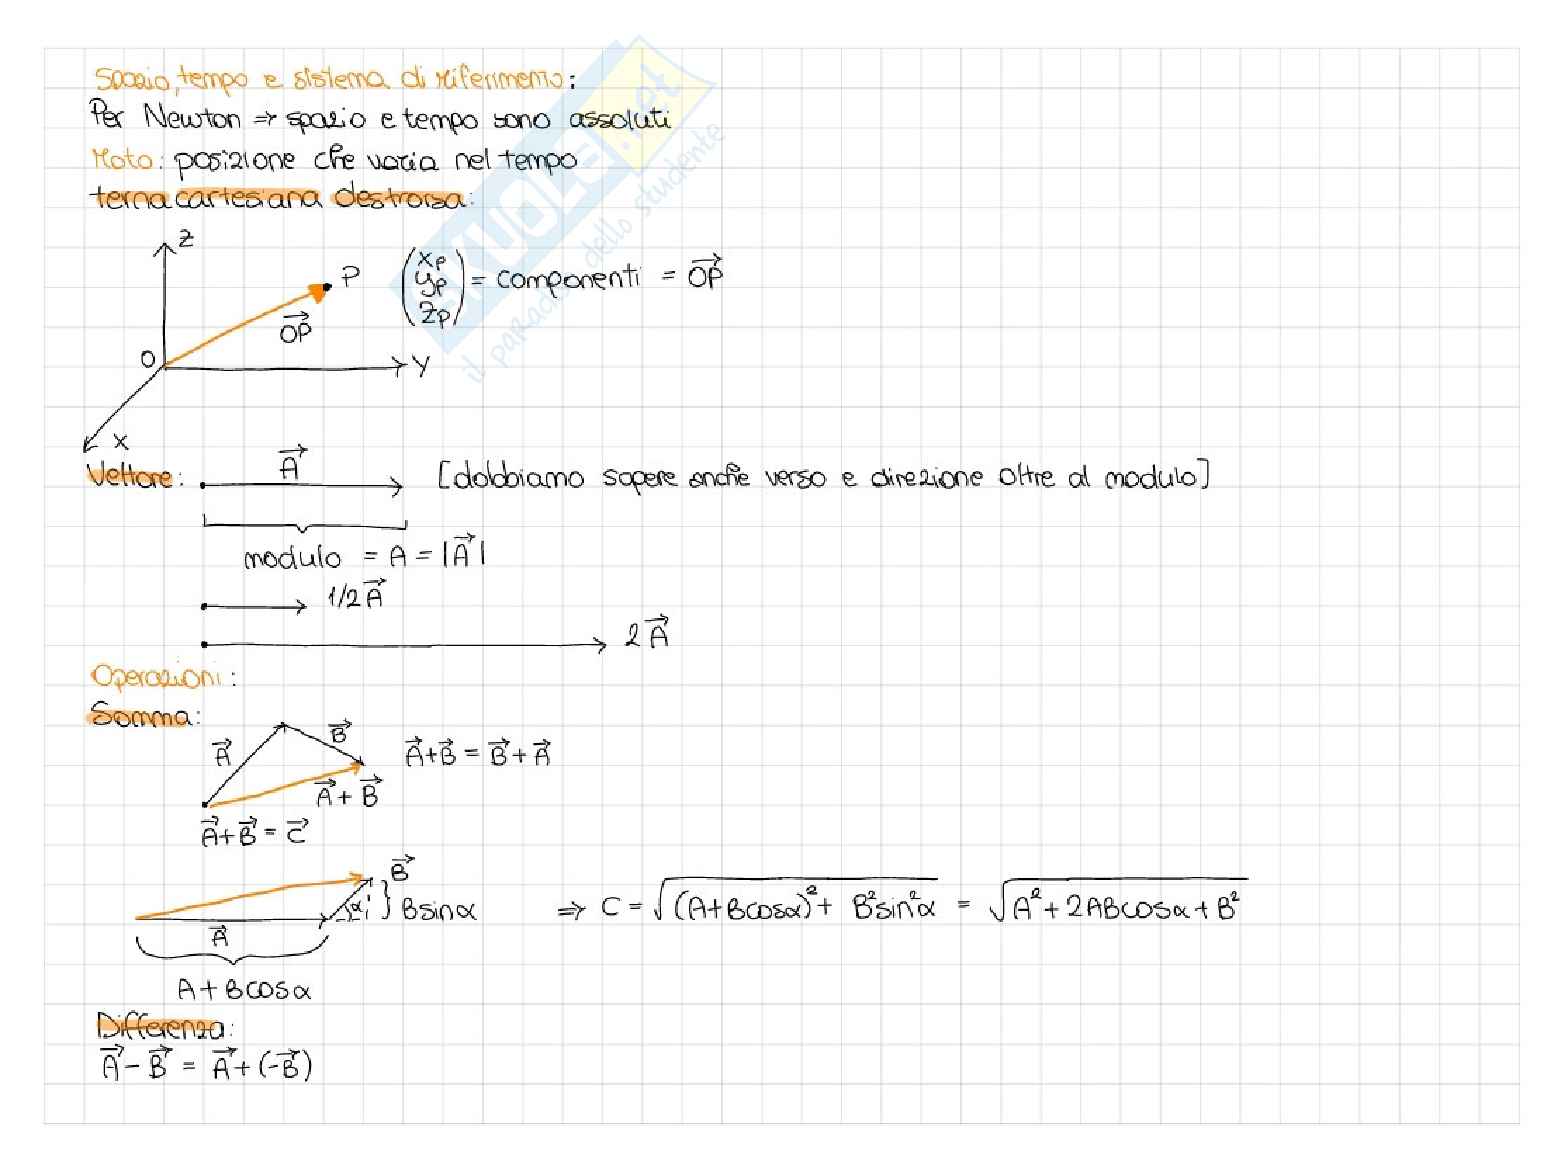 Spazio, tempo e sistema di riferimento:
Per Newton ⇒ spazio e tempo sono assoluti
Moto: posizione che varia nel tempo
terna cartesiana destrorsa:
Z
P
(xP yP zP) = componenti = \vec{OP}
\vec{OP}
O
Y
X
Vettore: \vec{A} [dobbiamo sapere anche verso e direzione oltre al modulo]
modulo = A = |\vec{A}|
1/2 \vec{A}
2 \vec{A}
Operazioni:
Somma:
\vec{A} \vec{B} \vec{A}+\vec{B} = \vec{B}+\vec{A}
\vec{A}+\vec{B}
\vec{A}+\vec{B} = \vec{C}
\vec{B}
α } B sinα ⇒ C = √((A+Bcosα)²+ B²sin²α) = √(A²+2ABcosα+B²)
\vec{A}
A+Bcosα
Differenza:
\vec{A}-\vec{B} = \vec{A}+(-\vec{B})
SKUOLA.net
il paradiso dello studente